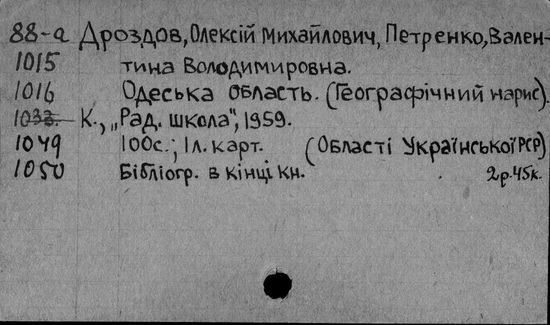 88-а Дроздов, Олексій Михайлович, Петренко, Вален-
1015 тина Володимировна.
1016 Одеська область. (Географічний нарис).
1033. К., „Рад. школа", 1959.
1049 100с.; 1л. карт. (Області Української РСР)
1050 Бібліогр. в кінці кн. 2р.45к.